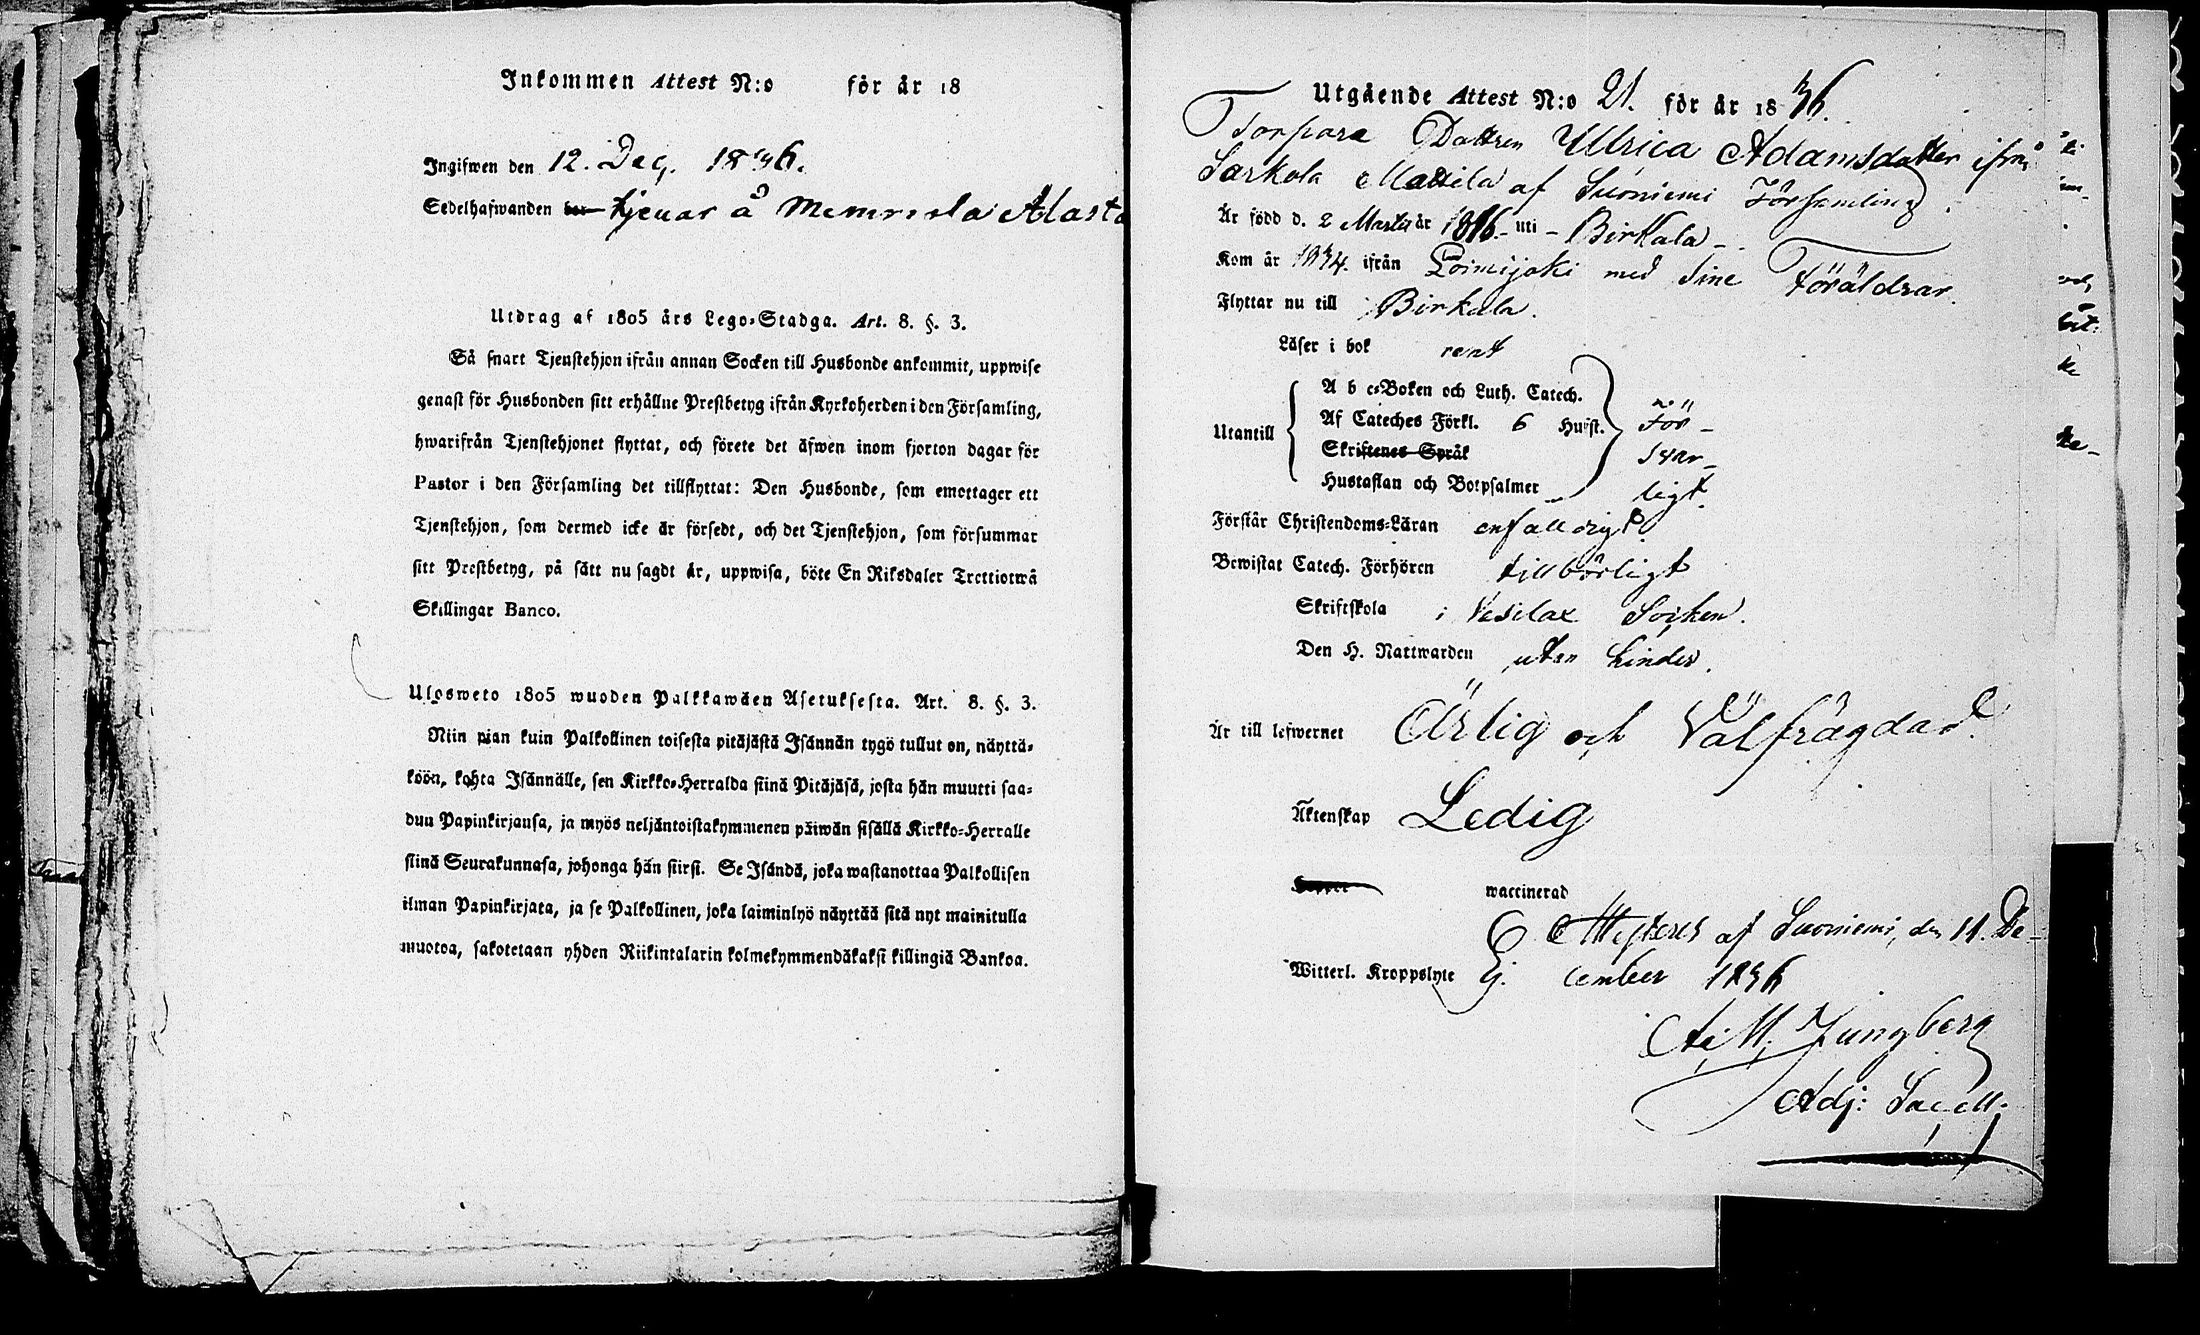 Inkommen Attest N:o för år 18
Ingifwen den 12. Dec. 1836.
Sedelhafwanden tjenar å Alasta
Utdrag af 1805 års Lego-Stadga. Art. 8. §. 3.
Så snart Tjenstehjon ifrån annan Socken till Husbonde ankommit, uppwise
genast för Husbonden sitt erhållne Prestbetyg ifrån Kyrkoherden i den Församling,
hwarifrån Tjenstehjonet flyttat, och förete det äfwen inom fjorton dagar för
Pastor i den Församling det tillflyttat: Den Husbonde, som emottager ett
Tjenstehjon, som dermed icke är försedt, och det Tjenstehjon, som försummar
sitt Prestbetyg, på sätt nu sagdt är, uppwisa, böte En Riksdaler Trettiotwå
Skillingar Banco.
Ulosweto 1805 wuoden Palkkawäen Asetuksesta. Art. 8. §. 3.
Niin pian kuin Palkollinen toisesta pitäjästä Isännän tygö tullut on, näyttä-
köön, kohta Isännälle, sen Kirkko-Herralda siinä Pitäjäsä, josta hän muutti saa-
dun Papinkirjansa, ja myös neljäntoistakymmenen päiwän sisällä Kirkko-Herralle
siinä Seurakunnasa, johonga hän siirsi. Se Isändä, joka wastanottaa Palkollisen
ilman Papinkirjata, ja se Palkollinen, joka laiminlyö näyttää sitä nyt mainitulla
muotoa, sakotetaan yhden Riikintalarin kolmekymmendäkaksi killingiä Bankoa.
Utgående Attest N:o 21. för år 1836.
Torpare Dottren Ullrica Adamsdotter ifrån
Sarkola Mattila af Suoniemi Församling.
Är född d. 2 Martii år 1816. uti Birkala
Kom år 1834. ifrån Loimijoki med sine Föräldrar.
Flyttar nu till Birkala.
Läser i bok rent
Utantill
A b c-Boken och Luth. Catech.
Af Cateches Förkl. 6 Hufst. För-
Skriftenes Språk svar-
Hustaflan och Botpsalmer ligt.
Förstår Christendoms-Läran enfalldigt
Bewistat Catech. Förhören tillbörligt
Skriftskola i Vesilax Socken.
Den H. Nattwarden utan hinder.
Är till lefwernet Ärlig och Välfrägdad.
Äktenskap Ledig
waccinerad
Attesteras af Suoniemi, den 11. De-
Witterl. Kroppslyte Ej. cember 1836
Ljungberg
Adj: Sacell: